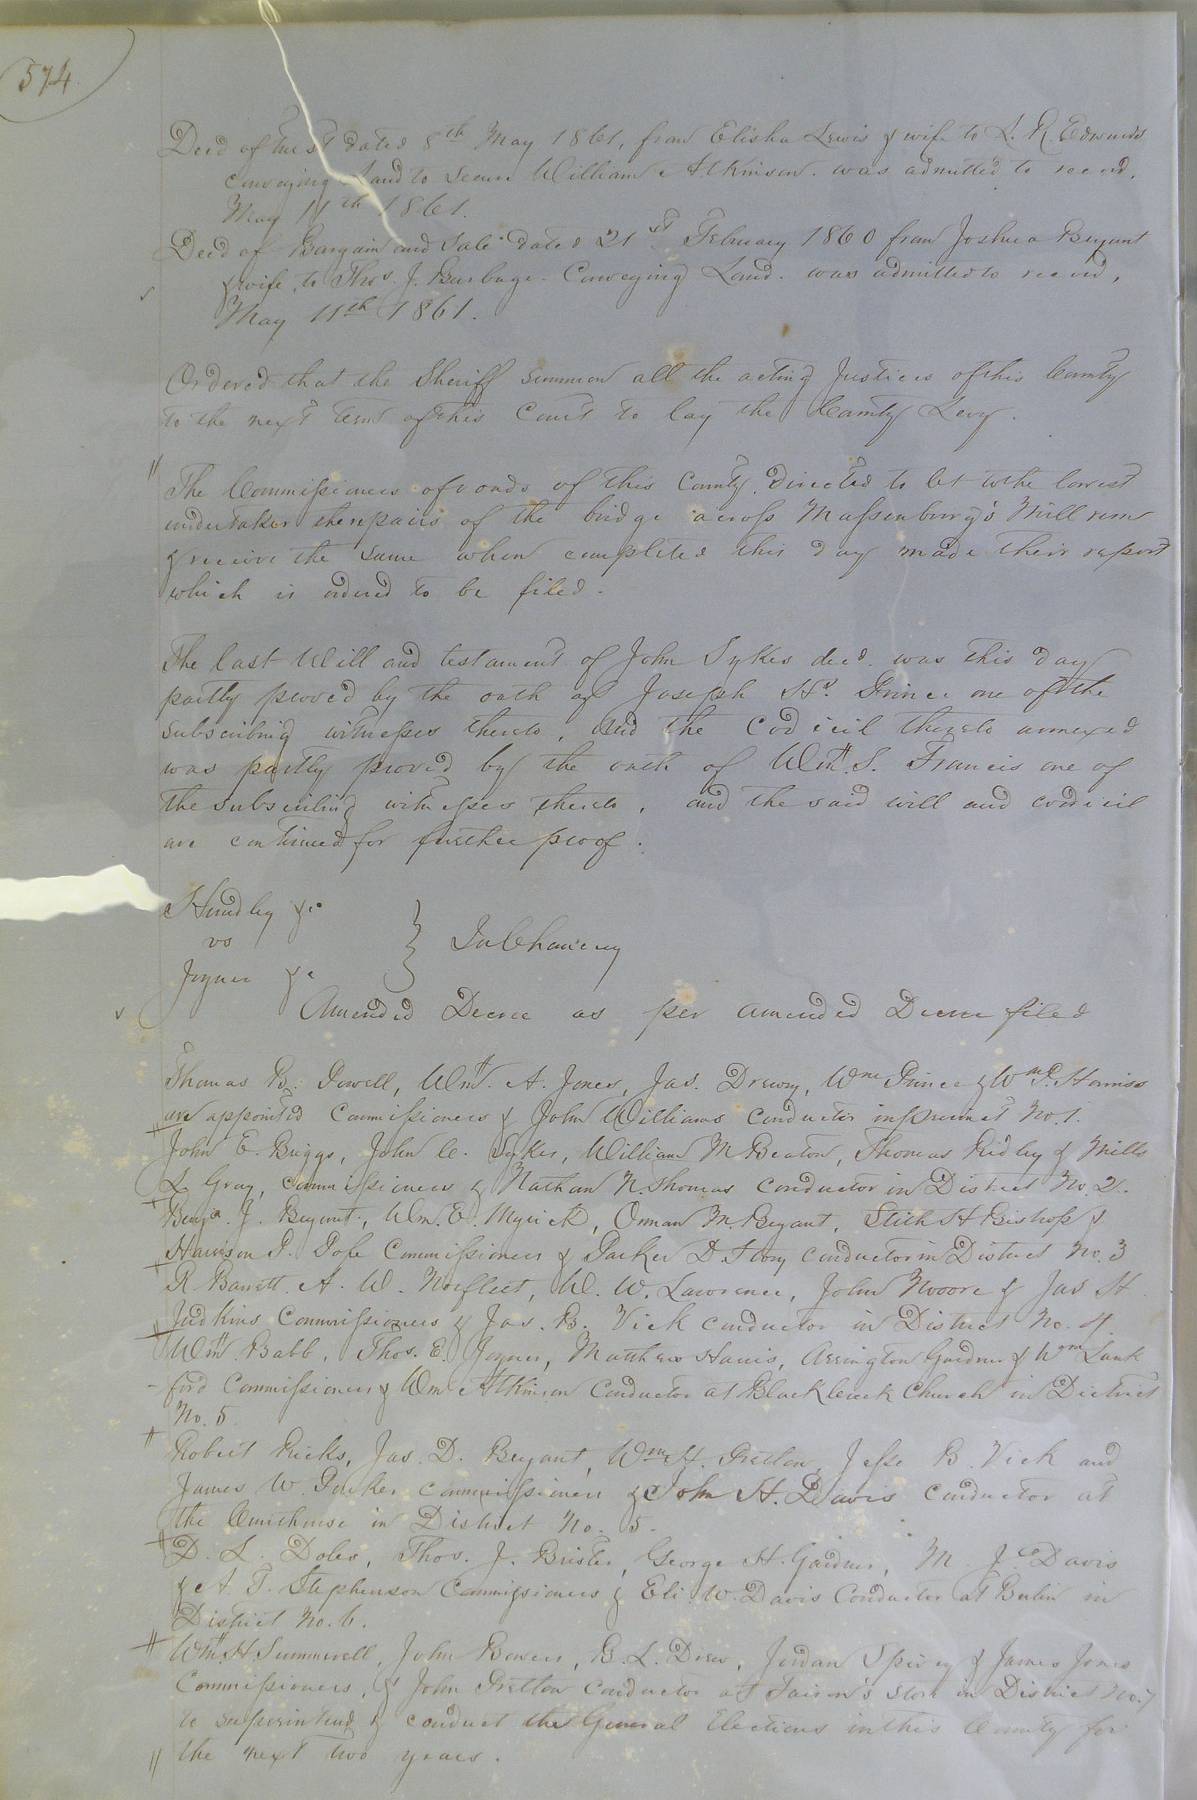 574
Deed of trust dated 8th May 1861, from Elisha Lewis & wife to L. R. Edwards
conveying Land to secure William Atkinson. was admitted to record.
May 11th 1861.
Deed of Bargain and Sale dated 21st February 1860 from Joshua Bryant
& wife, to Thos. J. Burbage - Conveying Land. was admitted to record,
May 11th 1861.
Ordered that the Sheriff summon all the acting Justices of this County
to the next term of this Court to lay the County Levy.
The Commissioners of roads of this County, directed to let to the lowest
undertaker the repairs of the bridge across Massenburg's Mill run
& receive the same when completed this day made their report
which is ordered to be filed.
The last Will and testament of John Sykes decd. was this day
partly proved by the oath of Joseph H. Prince one of the
subscribing witnesses thereto, and the Codicil thereto annexed
was partly proved by the oath of Wm. S. Francis one of
the subscribing witnesses thereto, and the said will and codicil
are continued for further proof.
Hundley &c
vs } In Chancery
Joyner &c
Amended Decree as per amended Decree filed
Thomas B. Powell, Wm. A. Jones, Jas. Drewry, Wm Prince & Wm P. Harriss
are appointed Commissioners & John Williams conductor in precinct No. 1.
John E. Briggs, John C. Sykes, William M Beaton, Thomas Ridley & Mills
L. Gray, commissioners & Nathan N. Thomas conductor in District No. 2.
Benja. J. Bryant, Wm. E. Myrick, Orman M. Bryant, Stith H Bishop &
Harrison P. Pope Commissioners & Parker D. Story conductor in District No. 3
R. Barrett. A. W. Norfleet, W. W. Lawrence, John Moore & Jas H
Judkins Commissioners & Jas. B. Vick conductor in District No. 4.
Wm. Babb, Thos. E. Joyner, Matthew Harris, Arrington Gardner & Wm Lank
ford Commissioners & Wm Atkinson Conductor at Black Creek Church in District
No. 5
Robert Ricks, Jas. D. Bryant, Wm H. Pretlow, Jesse B. Vick and
James W. Parker commissioners & John H. Davis conductor at
the Courthouse in District No. 5.
D. L. Doles, Thos. J. Brister, George H. Gardner, M. J. Davis
& A T. Stephenson Commissioners & Eli W. Davis Conductor at Berlin in
District No. 6.
Wm. H Summerell, John Bowers, B. L. Drew, Jordan Spivey & James Jones
Commissioners, & John Pretlow Conductor at Faison's Store in District No. 7
to superintend & conduct the General Elections in this County for
the next two years.